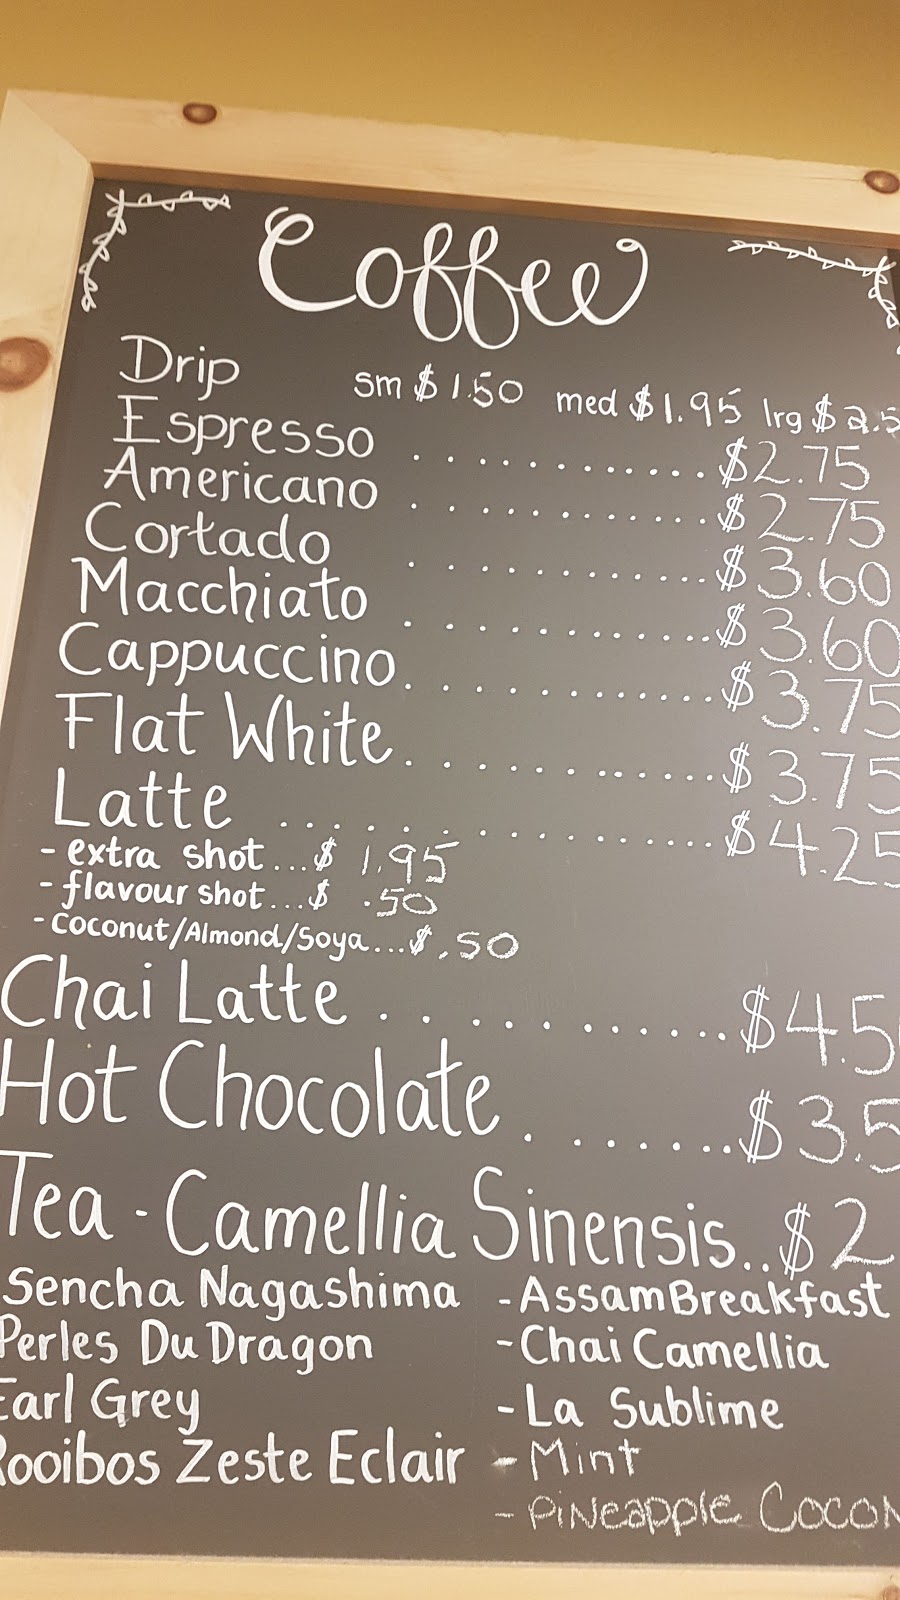 Coffee
Drip sm $1.50 med $1.95 lrg $2.5
Espresso ............ $2.75
Americano ............ $2.75
Cortado ............ $3.60
Macchiato ............ $3.60
Cappuccino ............ $3.75
Flat White ............ $3.75
Latte ............ $4.25
- extra shot...$ 1.95
- flavour shot...$ .50
- Coconut/Almond/Soya...$.50
Chai Latte ............ $4.5
Hot Chocolate ........ $3.5
Tea - Camellia Sinensis..$2
Sencha Nagashima - Assam Breakfast
Perles Du Dragon - Chai Camellia
Earl Grey - La Sublime
Rooibos Zeste Eclair - Mint
- Pineapple Cocon